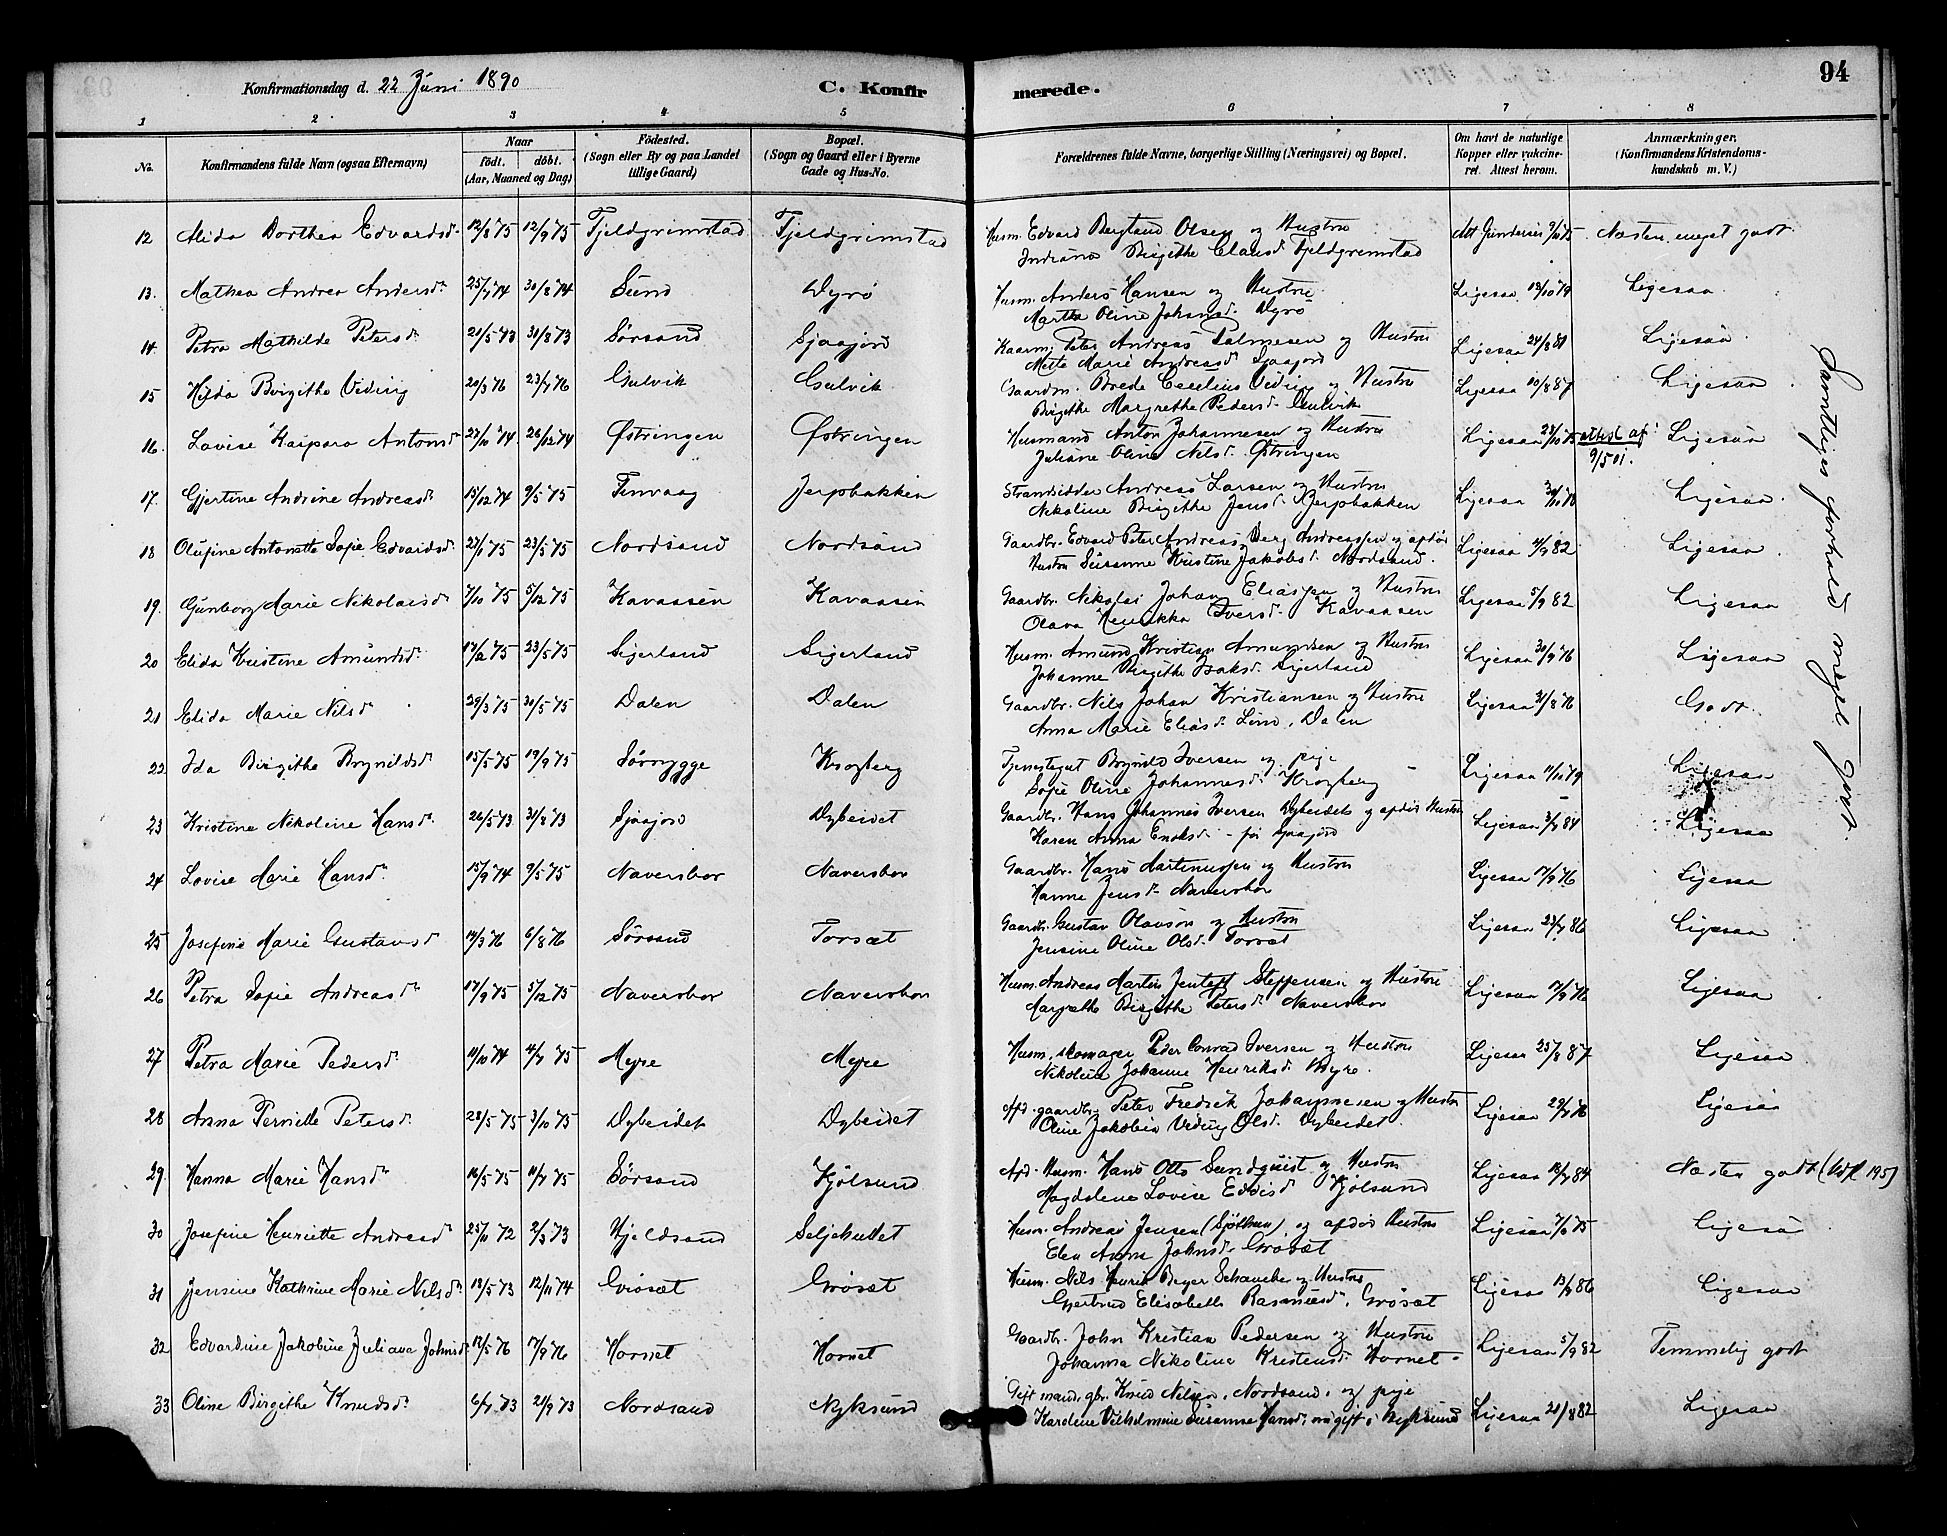 94
Konfirmationsdag d. 22 Juni 1890
C. Konfirmerede.
1 2 3 4 5 6 7 8
No. Konfirmandens fulde Navn (ogsaa Efternavn) Naar födt. döbt. (Aar, Maaned og Dag) Födested. (Sogn eller By og paa Landet tillige Gaard) Bopæl. (Sogn og Gaard eller i Byerne Gade og Hus-No. Forældrenes fulde Navne, borgerlige Stilling (Næringsvei) og Bopæl. Om havt de naturlige Kopper eller vakcineret. Attest herom. Anmærkninger. (Konfirmandens Kristendomskundskab m. V.)
12 Alida Dorthea Edvardsd. 12/8 75 12/9 75 Fjeldgrimstad Fjeldgrimstad Husm. Edvard Bergland Olsen og Hustru Indiana Birgithe Clausd. Fjeldgrimstad Næsten meget godt
13. Mathea Andrea Andersdr 25/7 74 30/8 74 Sund Dyrø Husm. Anders Hansen og Hustru Martha Oline Johansd. Dyrø Ligesaa 19/10 79 Ligesaa
14. Petra Mathilde Petersdr 21/5 73 31/8 73 Sørsand Sjaajord Kaarm. Peter Andreas Salmesen og Hustru Mette Marie Andreasdr Sjaajord Ligesaa 24/8 81 Ligesaa
15 Hilda Birgithe Veding 20/3 76 23/7 76 Gulvik Gulvik Gaardm. Brede Cecelius Veding og Hustru Birgithe Margrethe Pedersd. Gulvik Ligesaa 10/8 87 Ligesaa
16. Lovise Kaspara Antonsd 27/10 74 26/12 74 Østringen Østringen Husmand Anton Johannesen og Hustru Juliane Oline Nilsd. Østringen Ligesaa 28/10 75 attest af 9/5 01. Ligesaa
17. Gjertine Andrine Andreasd. 15/12 74 9/5 75 Finvaag Jerpbakken Strandsidder Andreas Larsen og Hustru Nikoline Birgithe Jensd. Jerpbakken Ligesaa Ligesaa
18 Olufine Antonette Sofie Edvardsd. 27/1 75 23/5 75 Nordsand Nordsand Gaardbr. Edvard Peter Andreas Berg Andreassen og afdøde Hustru Susanne Kristine Jakobsd. Nordsand. Ligesaa 4/9 82 Ligesaa
19. Gunborg Marie Nikolaisd. 7/10 75 5/12 75 Kavaasen Kavaasen Gaardbr. Nikolai Johan Eliassen og Hustru Olava Henrikka Iversd. Kavaasen Ligesaa 5/9 82 Ligesaa
20 Elida Kristine Amundsd. 17/2 75 23/5 75 Sigerland Sigerland Husm. Amund Kristian Amundsen og Hustru Johanne Birgithe Isaksd. Sigerland Ligesaa 30/9 76 Ligesaa
21 Elida Marie Nilsd. 29/3 75 30/5 75 Dalen Dalen Gaardbr. Nils Johan Kristiansen og Hustru Anna Marie Eliasd. Lind, Dalen Ligesaa 31/8 76 Godt
22 Ida Birgithe Brynildsd. 15/5 75 19/9 75 Sørrygge Krogberg Tjenestegut Brynild Iversen og pige Sofie Oline Johannesd. Krogberg Ligesaa 11/10 79 Ligesaa
23 Kristine Nikoline Hansd. 26/5 73 31/8 73 Sjaajord Dybeidet Gaardbr. Hans Johannes Iversen Dybeidet og afdøde Hustru Karen Anna Enoksd. Ligesaa 3/7 84 Ligesaa
24 Lovise Marie Hansd. 15/9 74 9/5 75 Naversbor Naversbor Gaardbr. Hans Martinussen og Hustru Hanna Jensd. Naversbor Ligesaa 17/9 76 Ligesaa
25 Josefine Marie Gustavsd 14/3 76 6/8 76 Sørsand Torsæt Gaardbr. Gustav Olavsen og Hustru Jensine Oline Olsd. Torsæt Ligesaa 23/7 86 Ligesaa
26 Petra Sofie Andreasdr 17/9 75 5/12 75 Naversbor Naversbor Husm. Andreas Martin Jentoft Steffensen og Hustru Margrethe Birgithe Petersd. Naversbor Ligesaa 17/9 76 Ligesaa
27 Petra Marie Pedersd. 11/10 74 4/7 75 Myre Myre Husm. skomager Peder Conrad Iversen og Hustru Nikolina Johanne Henriksd. Myre. Ligesaa 25/8 87 Ligesaa
28 Anna Pernille Petersd. 28/5 75 3/10 75 Dybeidet Dybeidet Afd. gaardbr. Peter Fredrik Johannesen og Hustru Oline Jakobia Veding Olsd. Dybeidet. Ligesaa 29/7 76 Ligesaa
29. Hanna Marie Hansdr 16/5 75 11/7 75 Sørsand Kjølsund Afd. Husm. Hans Otto Sundquist og Hustru Magdalena Lovise Kjølsund Ligesaa 18/7 84 Næsten godt
30 Josefine Henriette Andreasd. 25/11 72 2/3 73 Hjeldsand Seljehullet Husm. Andreas Jensen og afdøde Hustru Elen Anna Johnsd. Grøsæt Ligesaa Ligesaa
31 Jensine Kathrine Marie Nilsd. 18/5 73 12/11 74 Grøsæt Grøsæt Husm. Nils Henrik Beyer Schancke og Hustru Gjertrud Elisabeth Rasmusd. Grøsæt Ligesaa 13/7 86 Ligesaa
32 Edvardine Jakobine Juliana Johnsd. 13/5 76 17/9 76 Hornet Hornet Gaardbr. John Kristian Pedersen og Hustru Johanna Nikolina Kristensd. Hornet Ligesaa 5/9 82 Temmelig godt
33 Oline Birgithe Knudsd. 6/7 73 21/9 73 Nordsand Nyksund Gift mand, gbr. Knud Nilsen, Nordsand, og pige Karoline Vilhelmine Susanna Hansd. nu gift i Nyksund Ligesaa 21/8 82 Ligesaa
Samtliges forhold meget godt.